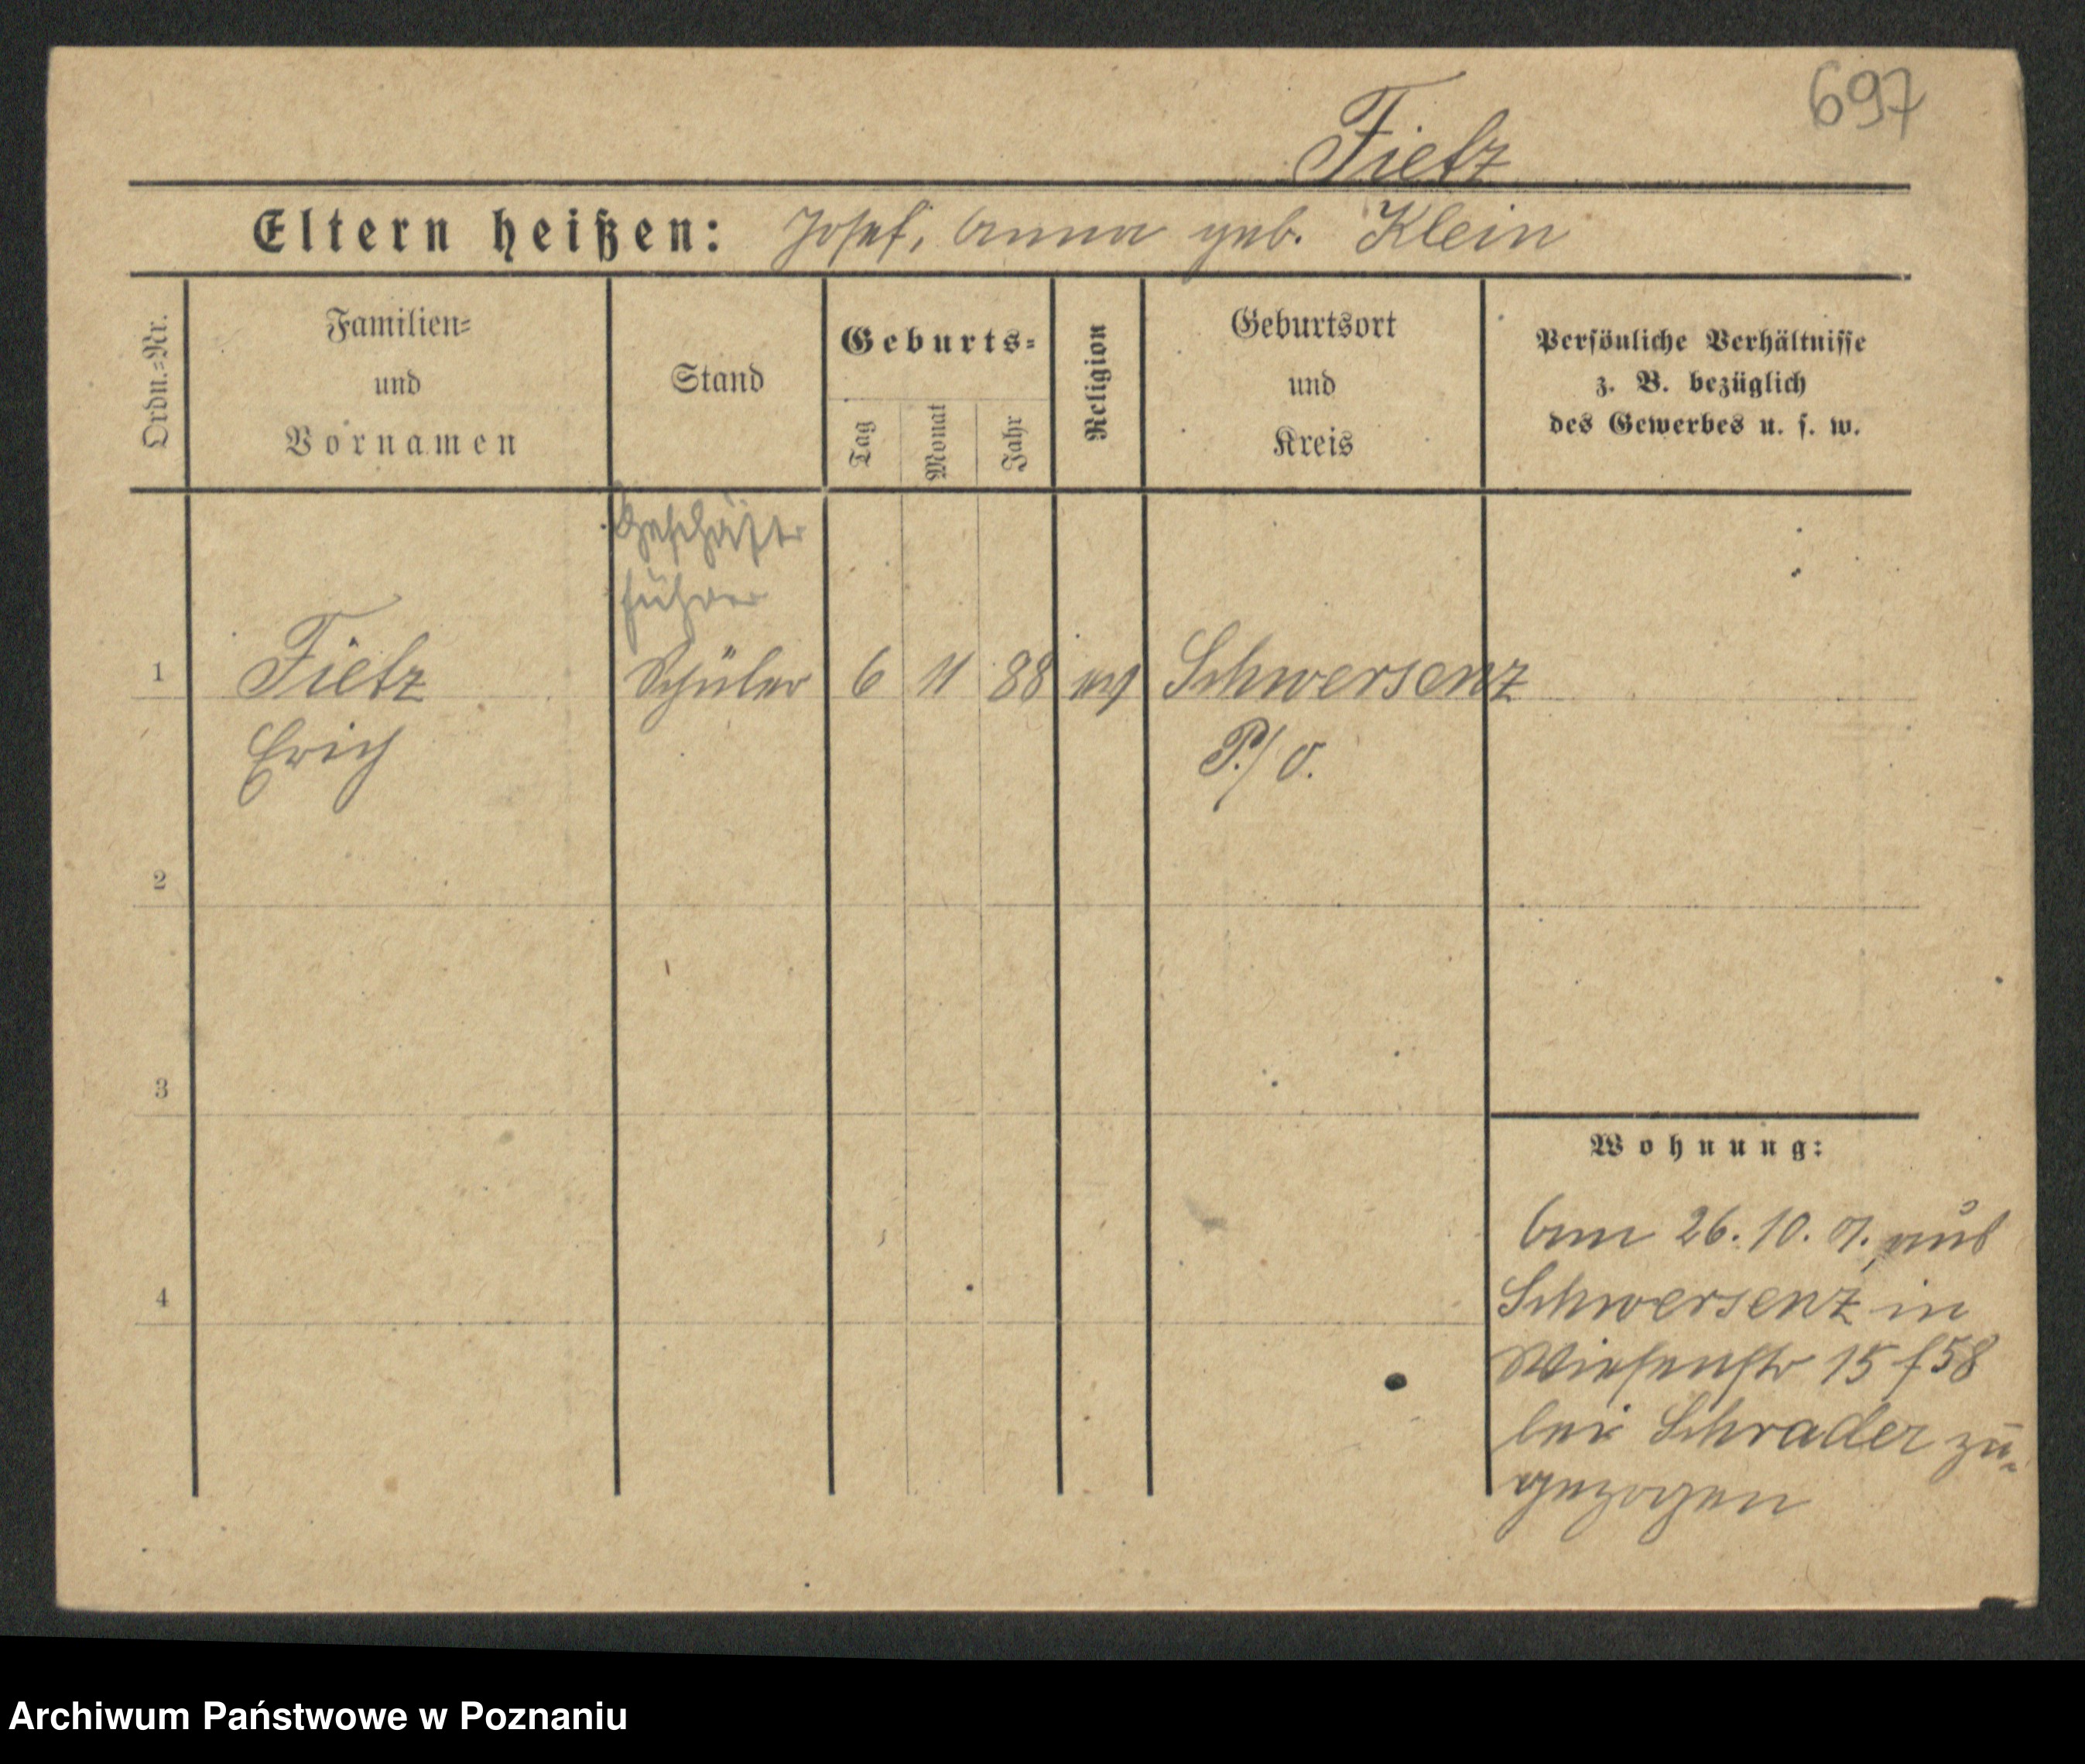 697
Fietz
Eltern heißen: Josef, Anna geb. Klein
Ordn.=Nr.
Familien=
und
Vornamen
Stand
Geburts=
Tag
Monat
Jahr
Religion
Geburtsort
und
Kreis
Persönliche Verhältnisse
z. B. bezüglich
des Gewerbes u. s. w.
Geschäfts
führer
1 Fietz Schüler 6 11 88 ev Schwersenz
Erich P./O.
2
3
Wohnung:
Am 26.10.07. aus
Schwersenz in
4
Wiesenstr 15 f58
bei Schrader zu=
gezogen
Archiwum Państwowe w Poznaniu